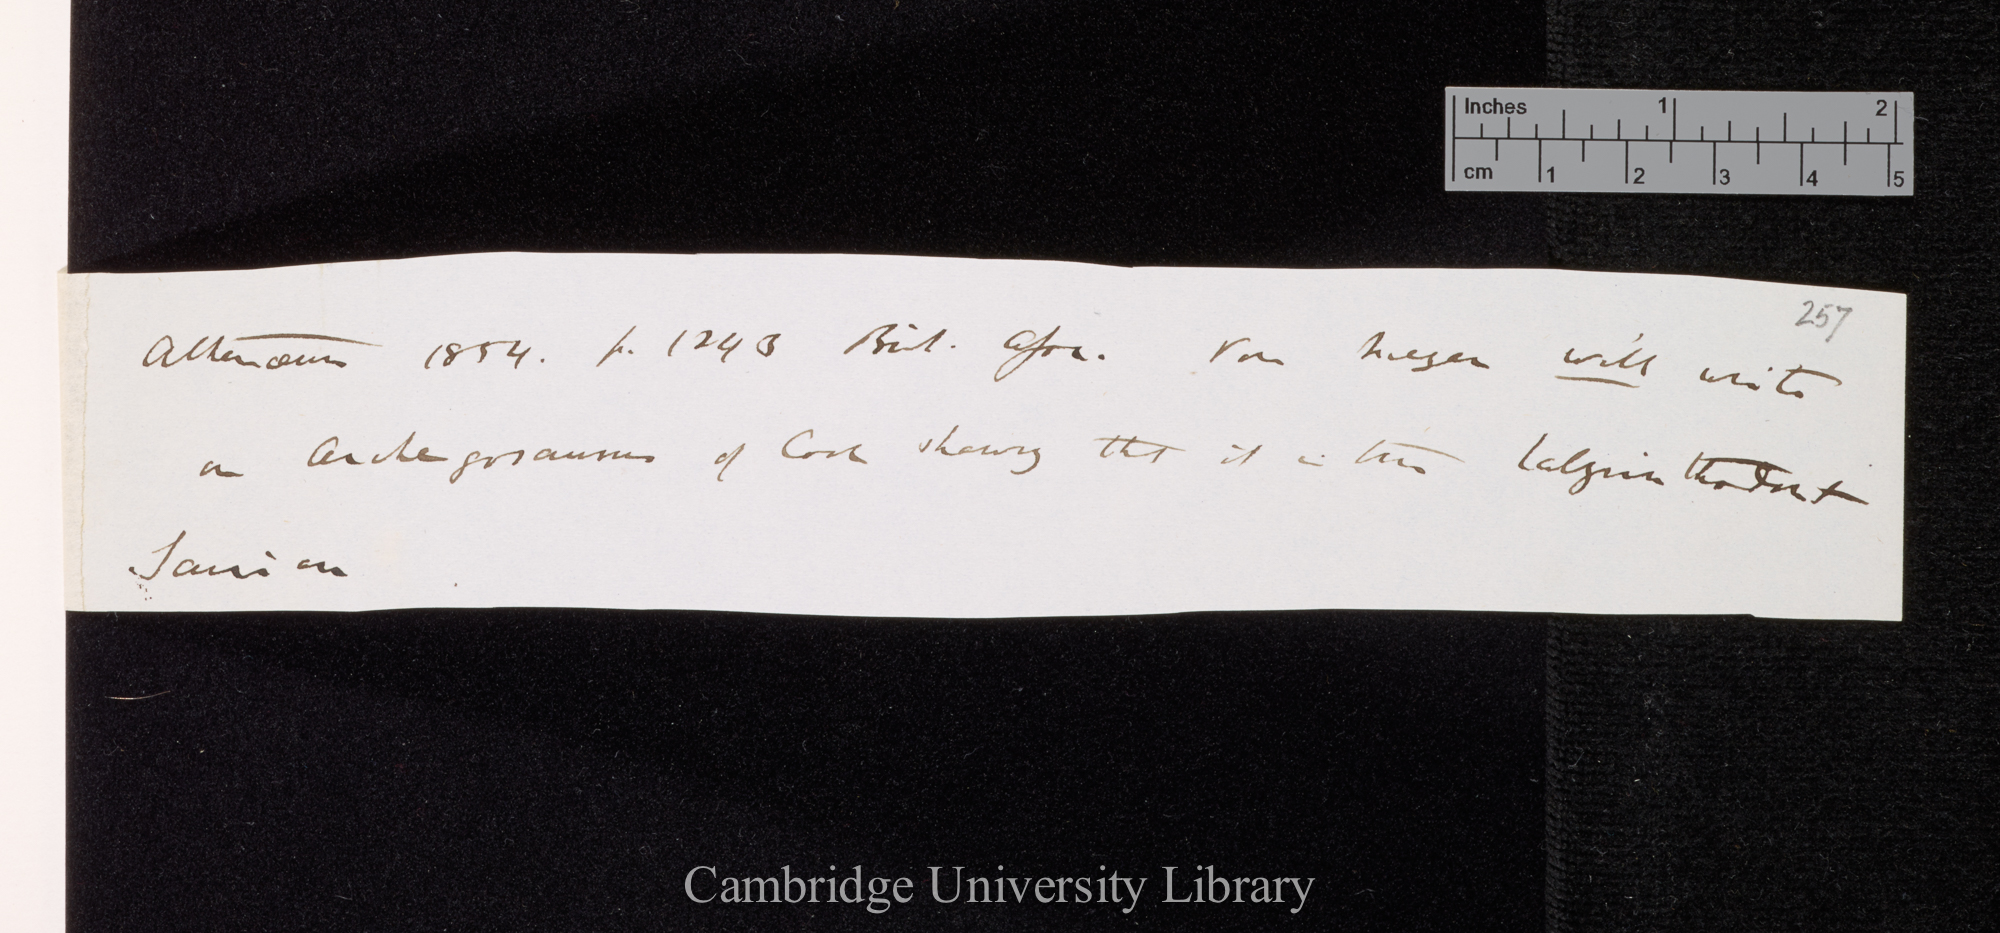 257
Athenæum 1854. p. 1243 Brit. Assoc. Von Meyer will write
on Archegosaurus of Coal showing that it is true Labyrinthodont
Saurian
Inches 1 2
cm 1 2 3 4 5
Cambridge University Library